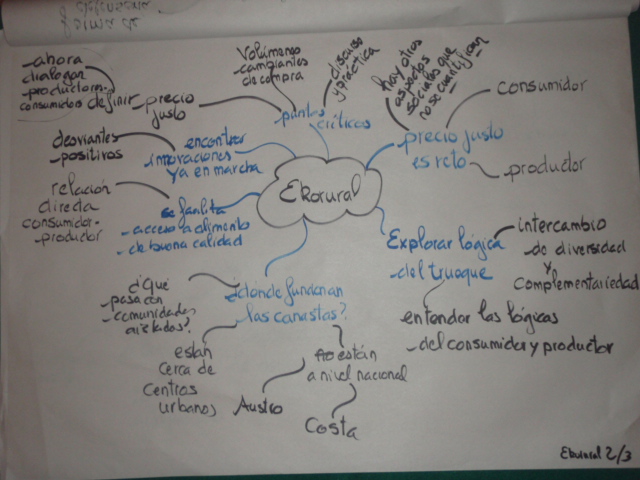 Ekorural
puntos
críticos
Volúmenes
cambiantes
de compra
discurso
y práctica
definir precio
justo
- ahora
dialogan
- productores -
consumidores
encontrar
innovaciones
ya en marcha
desviantes
- positivos
se facilita
- acceso a alimento
- de buena calidad
relación
directa
consumidor -
- productor
¿dónde funcionan
las canastas?
¿Qué
pasa con
- comunidades
aisladas?
están
cerca de
centros
urbanos
no están
a nivel nacional
Austro
Costa
Explorar lógica
- del trueque
intercambio
- de diversidad
y
complementariedad
entender las lógicas
- del consumidor y productor
precio justo
es reto
hay otros
aspectos
sociales que
no se cuantifican
consumidor
productor
Ekorural 2/3